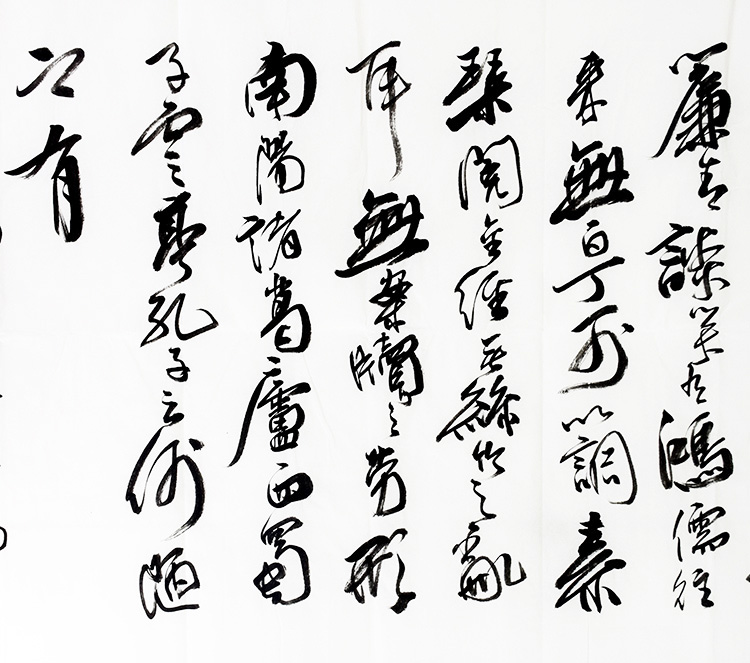 簾青談笑有鴻儒往
來無白丁可以調素
琴閱金經无絲竹之亂
耳無案牘之勞形
南陽諸葛廬西蜀
子雲之亭孔子云何陋
之有